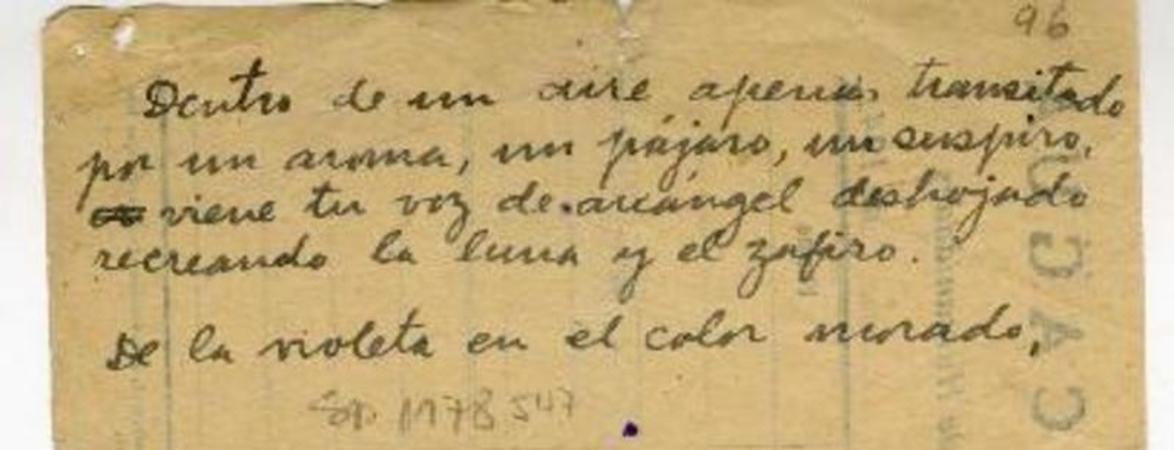 96
Dentro de un aire apenas transitado
por un aroma, un pájaro, un suspiro,
viene tu voz de arcángel deshojado
recreando la luna y el zafiro.
De la violeta en el color morado,